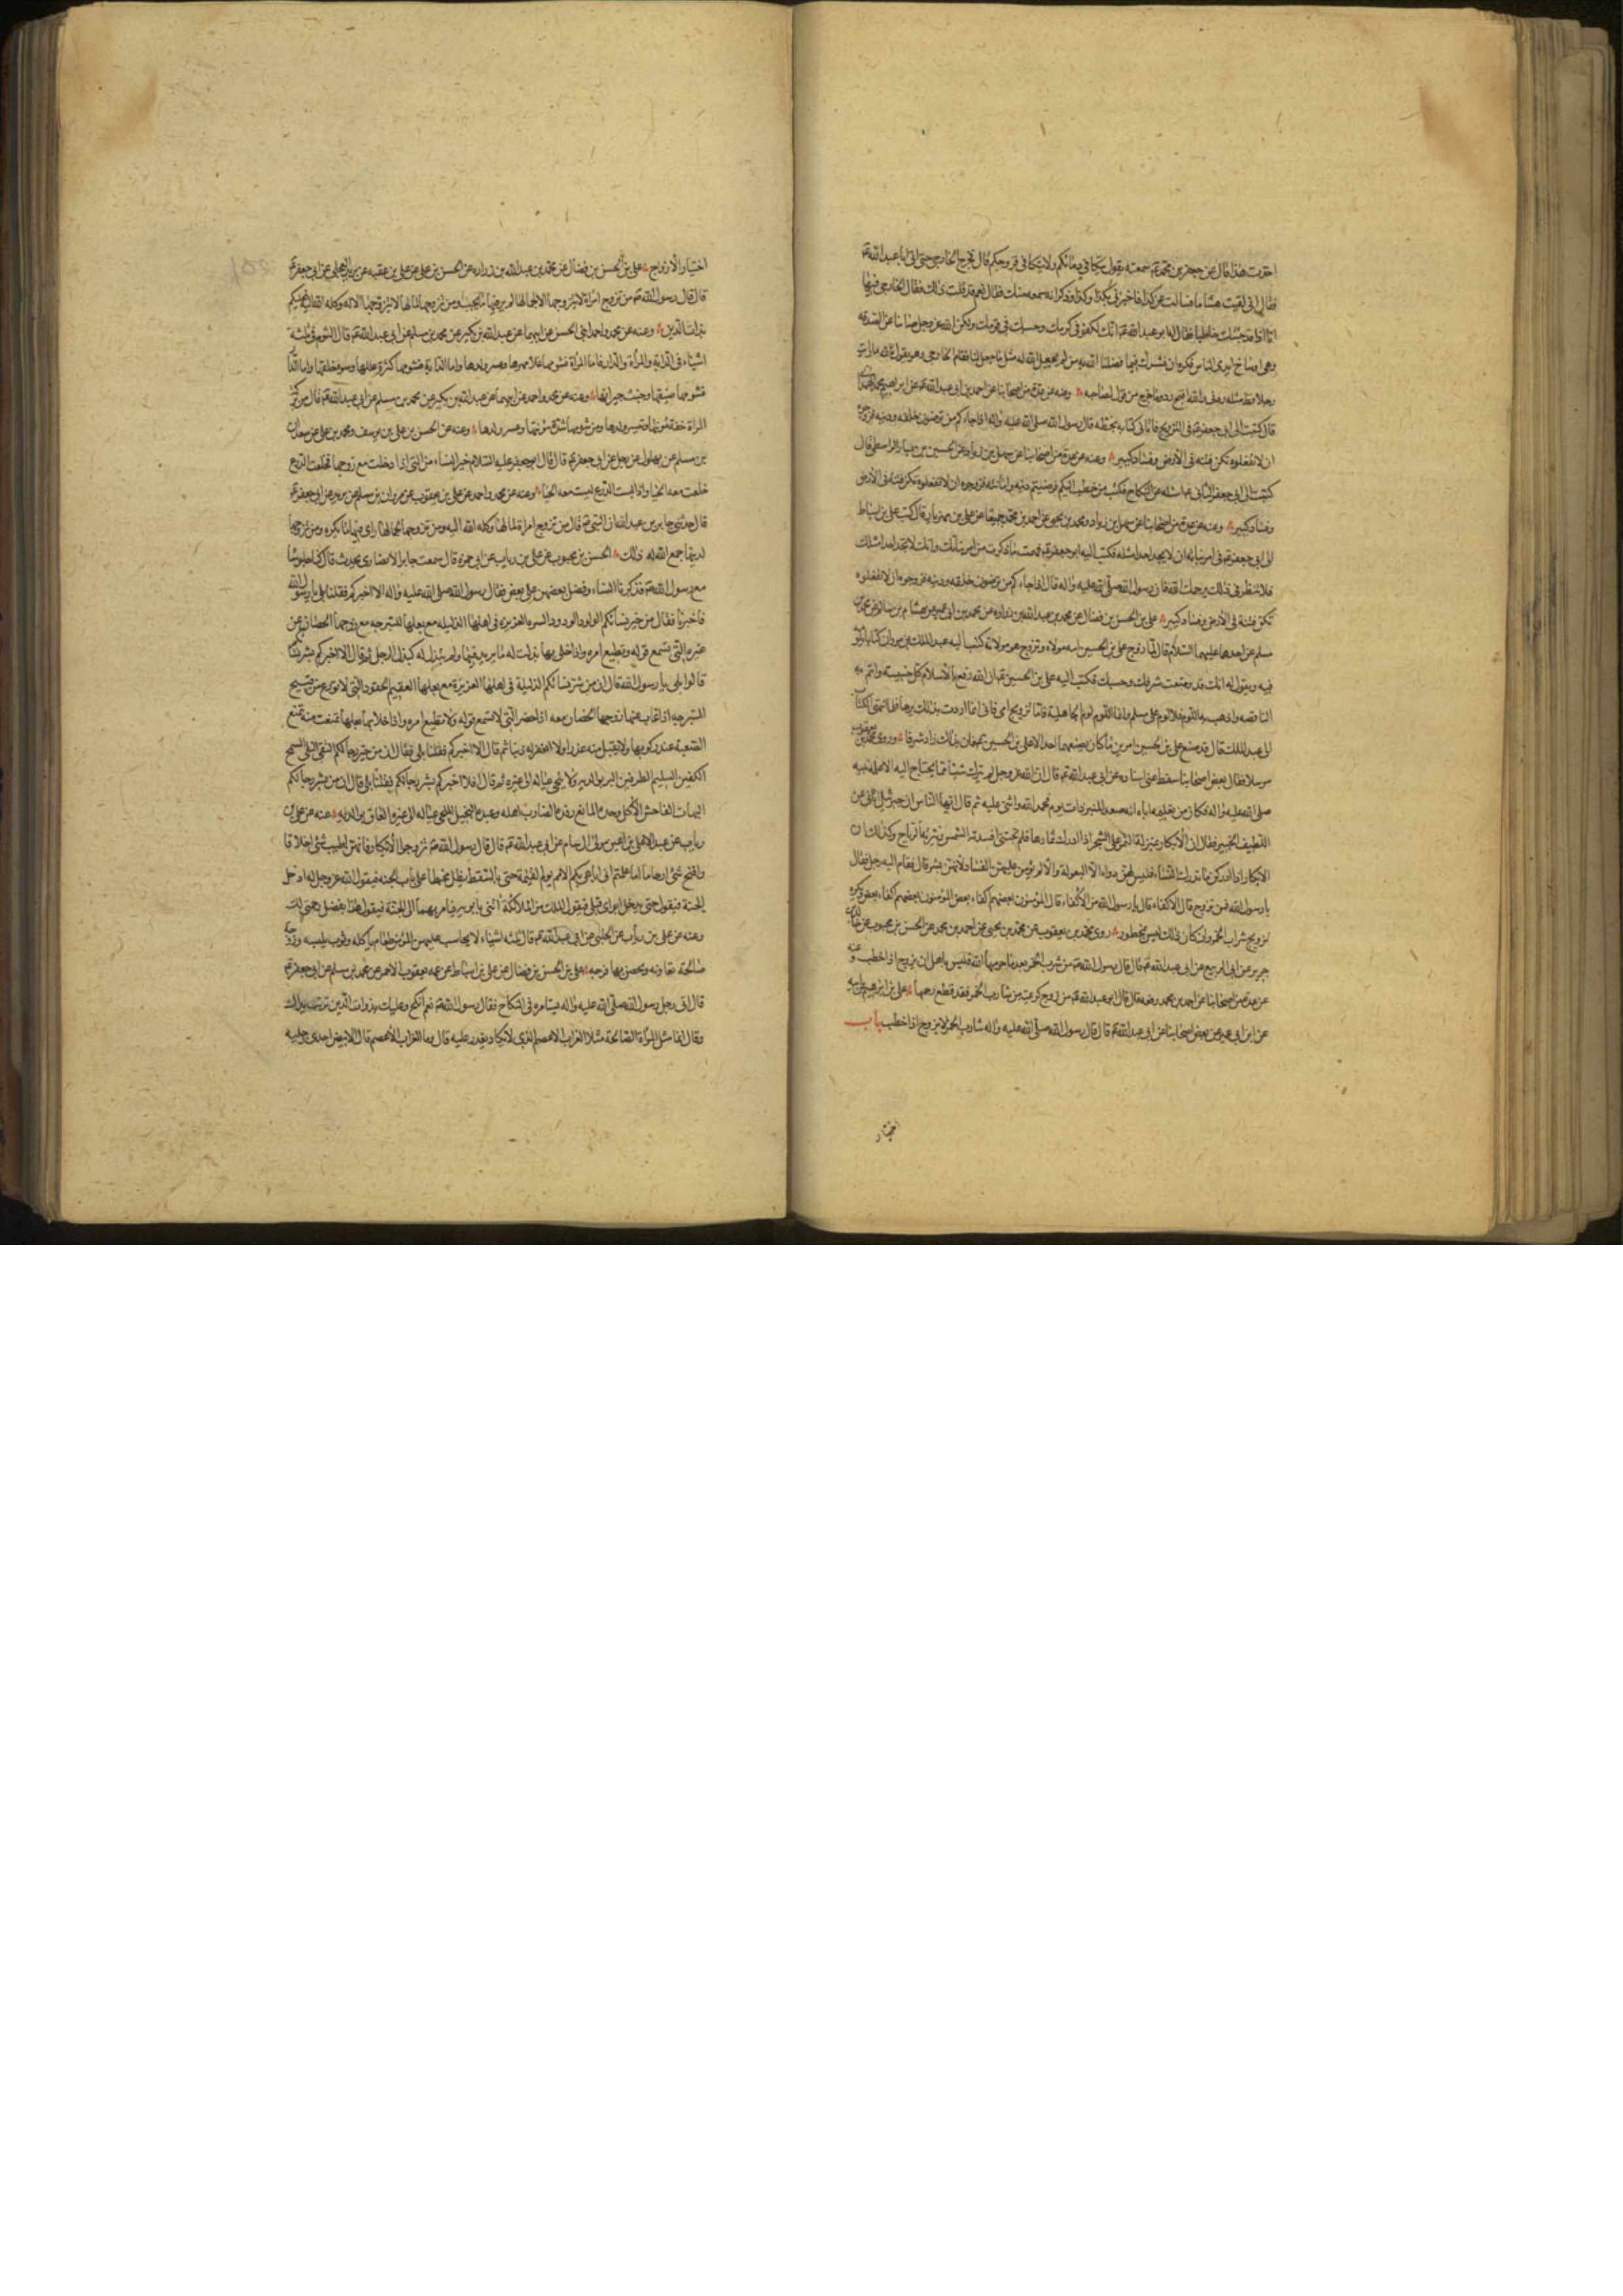 اخذت هذا قال عن جعفر بن محمد ع سمعته يقول يتكافى دمائكم ولا يتكافى فروجكم قال فخرج الخارجى حتى اتى ابا عبد الله ع
فقال انى لقيت هشاما فسالته عن كذا فاخبرنى بكذا وكذا وذكر انه سمعه منك فقال نعم قد قلت ذلك فقال الخارجى فها
انا ذا قد جئتك خاطبا فقال له ابو عبد الله ع انك لكفو فى كرمك وحسبك فى قومك ولكن الله عز وجل صاننا عن الصدقه
وهى اوساخ ايدى الناس فكره ان نشرك فيما فضلنا الله به من لم يجعل الله له مثل ما جعل لنا فقام الخارجى وهو يقول تالله ما رايت
رجلا قط مثله ردنى والله اقبح رد وما خرج من قول صاحبه وعنه عن عدة من اصحابنا عن احمد بن ابى عبد الله عن ابراهيم بن محمد الهمدانى
قال كتبت الى ابى جعفر ع فى التزويج فاتانى كتابه بخطه قال رسول الله صلى الله عليه واله اذا جاءكم من ترضون خلقه ودينه فزوجوه
ان لا تفعلوه تكن فتنه فى الارض وفساد كبير وعنه عن عدة من اصحابنا عن سهل بن زياد عن الحسين بن بشار الواسطى قال
كتبت الى ابى جعفر الثانى ع اساله عن النكاح فكتب من خطب اليكم فرضيتم دينه وامانته فزوجوه ان لا تفعلوه تكن فتنة فى الارض
وفساد كبير وعنه عن عدة من اصحابنا عن سهل بن زياد ومحمد بن يحيى عن احمد بن محمد جميعا عن على بن مهزيار قال كتب على بن اسباط
الى ابى جعفر ع فى امر بناته ان لا يجد احدا مثله فكتب اليه ابو جعفر ع فهمت ما ذكرت من امر بناتك وانك لا تجد احدا مثلك
فلا تنظر فى ذلك يرحمك الله فان رسول الله صلى الله عليه واله قال اذا جاءكم من ترضون خلقه ودينه فزوجوه ان لا تفعلوه
تكن فتنة فى الارض وفساد كبير على بن الحسن بن فضال عن محمد بن عبد الله بن زراره عن محمد بن ابى عمير عن هشام بن سالم عن محمد بن
مسلم عن احدهما عليهما السلام قال لما زوج على بن الحسين امه مولاه وتزوج هو مولاته كتب اليه عبد الملك بن مروان كتابا يلومه
فيه ويقول له انك قد وضعت شرفك وحسبك فكتب اليه على بن الحسين ع ان الله رفع بالاسلام كل خسيسة واتم به
الناقصه واذهب به اللوم فلا لوم على مسلم وانما اللوم لوم الجاهلية فاما تزويج امى فانى انما اردت بذلك برها فلما انتهى الكتاب
الى عبد الملك قال قد صنع على بن الحسين امرين ما كان يصنعهما احد الا على بن الحسين ع فان بذلك زاد شرفا وروى محمد بن يعقوب
مرسلا قال بعض اصحابنا سقط عنى اسناده عن ابى عبد الله ع قال ان الله عز وجل لم يترك شيئا مما يحتاج اليه الا علمه نبيه
صلى الله عليه واله فكان من تعليمه اياه انه صعد المنبر ذات يوم فحمد الله واثنى عليه ثم قال ايها الناس ان جبرئيل اتانى عن
اللطيف الخبير فقال ان الابكار بمنزلة الثمر على الشجر اذا ادرك ثمارها فلم تجتنى افسدته الشمس ونثرته الرياح وكذلك ان
الابكار اذا ادركن ما تدرك النساء فليس لهن دواء الا البعولة والا لم يؤمن عليهن الفساد لانهن بشر قال فقام اليه رجل فقال
يا رسول الله فمن نزوج قال الاكفاء قال يا رسول الله من الاكفاء قال المؤمنون بعضهم اكفاء بعض المؤمنون بعضهم اكفاء بعض ويكره
تزويج شراب الخمر وان كان ذلك ليس بمحظور روى محمد بن يعقوب عن محمد بن يحيى عن احمد بن محمد عن الحسن بن محبوب عن خالد بن
جرير عن ابى الربيع عن ابى عبد الله ع قال قال رسول الله ص من شرب الخمر بعد ما حرمها الله فليس باهل ان يزوج اذا خطب وعنه
عن عدة من اصحابنا عن احمد بن محمد رفعه قال قال ابو عبد الله ع من زوج كريمته من شارب الخمر فقد قطع رحمها على بن ابراهيم عن ابيه
عن ابن ابى عمير عن بعض اصحابنا عن ابى عبد الله ع قال قال رسول الله صلى الله عليه واله شارب الخمر لا يزوج اذا خطب باب
اختيار
اختيار الازواج على بن الحسن بن فضال عن محمد بن عبد الله بن زراره عن الحسن بن على عن على بن عقبه عن بريد العجلى عن ابى جعفر ع
قال قال رسول الله ص من تزوج امراة لا يتزوجها الا لجمالها لم ير فيها ما يحب ومن تزوجها لمالها لا يتزوجها الا له وكله الله اليه فعليكم
بذات الدين وعنه عن محمد واحمد ابنى الحسن عن ابيهما عن عبد الله بن بكير عن محمد بن مسلم عن ابى عبد الله ع قال الشوم فى ثلثة
اشياء فى الدابة والمراة والدار فاما المراة فشومها غلاء مهرها وعسر ولدها واما الدابة فشومها كثرة عللها وسوء خلقها واما الدار
فشومها ضيقها وخبث جيرانها وعنه عن محمد واحمد عن ابيهما عن عبد الله بن بكير عن محمد بن مسلم عن ابى عبد الله ع قال من بركة
المراة خفة مؤنتها وتيسير ولدها ومن شومها شدة مؤنتها وعسر ولدها وعنه عن الحسن بن على بن يوسف ومحمد بن على عن سعدان
بن مسلم عن بهلول عن رجل عن ابى جعفر ع قال قال ابو جعفر عليه السلام خير النساء من التى اذا دخلت مع زوجها فخلعت الدرع
خلعت معه الحيا واذا لبست الدرع لبست معه الحيا وعنه عن محمد واحمد عن على بن يعقوب عن مروان بن مسلم عن بريد عن ابى جعفر ع
قال حدثنى جابر بن عبد الله ان النبى ص قال من تزوج امراة لمالها وكله الله اليه ومن تزوجها لجمالها راى فيها ما يكره ومن تزوجها
لدينها جمع الله له ذلك الحسن بن محبوب عن على بن رياب عن ابى حمزة قال سمعت جابر الانصارى يحدث قال كنا جلوسا
مع رسول الله ص فذكرنا النساء وفضل بعضهن على بعض فقال رسول الله صلى الله عليه واله الا اخبركم فقلنا بلى يا رسول الله
فاخبرنا فقال من خير نسائكم الولود الودود الستيره العزيزه فى اهلها الذليله مع بعلها المتبرجه مع زوجها الحصان عن
غيره التى تسمع قوله وتطيع امره واذا خلى بها بذلت له ما يريد منها ولم تبذل له كبذل الرجل ثم قال الا اخبركم بشر نسائكم
قالوا بلى يا رسول الله قال ان من شر نسائكم الذليلة فى اهلها العزيزة مع بعلها العقيم الحقود التى لا تتورع من قبيح
المتبرجه اذا غاب عنها زوجها الحصان معه اذا حضر التى لا تسمع قوله ولا تطيع امره واذا خلا بها بعلها تمنعت منه تمنع
الصعبة عند ركوبها ولا تقبل منه عذرا ولا تغفر له ذنبا ثم قال الا اخبركم فقلنا بلى فقال ان من خير رجالكم التقى النقى السمح
الكفين السليم الطرفين البر بوالديه ولا يلجى عياله الى غيره ثم قال افلا اخبركم بشر رجالكم فقلنا بلى قال ان من شر رجالكم
البهات الفاحش الاكل وحده المانع رفده الضارب اهله وعبده البخيل الملجى عياله الى غيره العاق بوالديه عنه عن على بن
رياب عن عبد الاعلى بن اعين مولى ال سام عن ابى عبد الله ع قال قال رسول الله ص تزوجوا الابكار فانهن اطيب شئ اخلاقا
وافتح شئ ارحاما اما علمتم انى اباهى بكم الامم يوم القيمة حتى بالسقط يظل محبنطا على باب الجنه فيقول الله عز وجل له ادخل
الجنة فيقول حتى يدخل ابواى قبلى فيقول لملك من الملائكة ائتنى بابويه فيامر بهما الى الجنة فيقول هذا بفضل رحمتى لك
وعنه عن على بن رياب عن الحلبى عن ابى عبد الله ع قال ثلثه اشياء لا يحاسب عليهن المؤمن طعام ياكله وثوب يلبسه وزوجة
صالحة تعاونه ويحصن بها فرجه على بن الحسن بن فضال عن على بن اسباط عن عمه يعقوب الاحمر عن محمد بن مسلم عن ابى جعفر ع
قال اتى رجل رسول الله صلى الله عليه واله يستامره فى النكاح فقال رسول الله ص نعم انكح وعليك بذوات الدين تربت يداك
وقال انما مثل المراة الصالحة مثل الغراب الاعصم الذى لا يكاد يقدر عليه قال وما الغراب الاعصم قال الابيض احدى رجليه